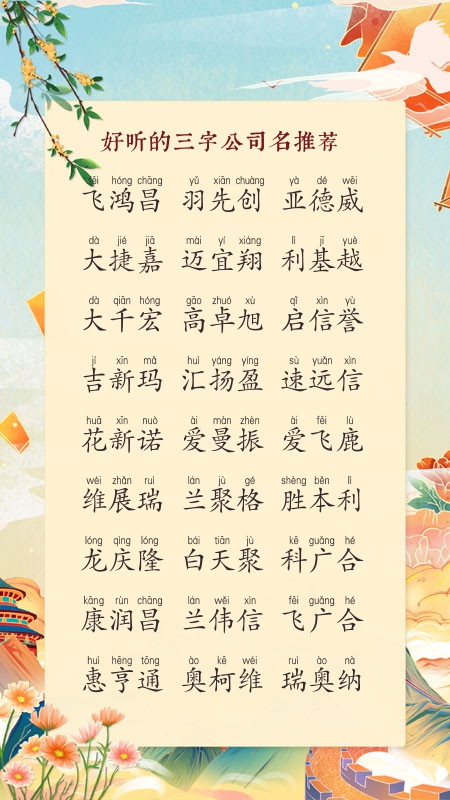 好听的三字公司名推荐
fēi hóng chāng yǔ xiān chuàng yà dé wēi
飞鸿昌 羽先创 亚德威
dà jié jiā mài yí xiáng lì jī yuè
大捷嘉 迈宜翔 利基越
dà qiān hóng gāo zhuó xù qǐ xìn yù
大千宏 高卓旭 启信誉
jí xīn mǎ huì yáng yíng sù yuǎn xìn
吉新玛 汇扬盈 速远信
huā xīn nuò ài màn zhèn ài fēi lù
花新诺 爱曼振 爱飞鹿
wéi zhǎn ruì lán jù gé shèng běn lì
维展瑞 兰聚格 胜本利
lóng qìng lóng bái tiān jù kē guǎng hé
龙庆隆 白天聚 科广合
kāng rùn chāng lán wěi xìn fēi guǎng hé
康润昌 兰伟信 飞广合
huì hēng tōng ào kē wéi ruì ào nà
惠亨通 奥柯维 瑞奥纳